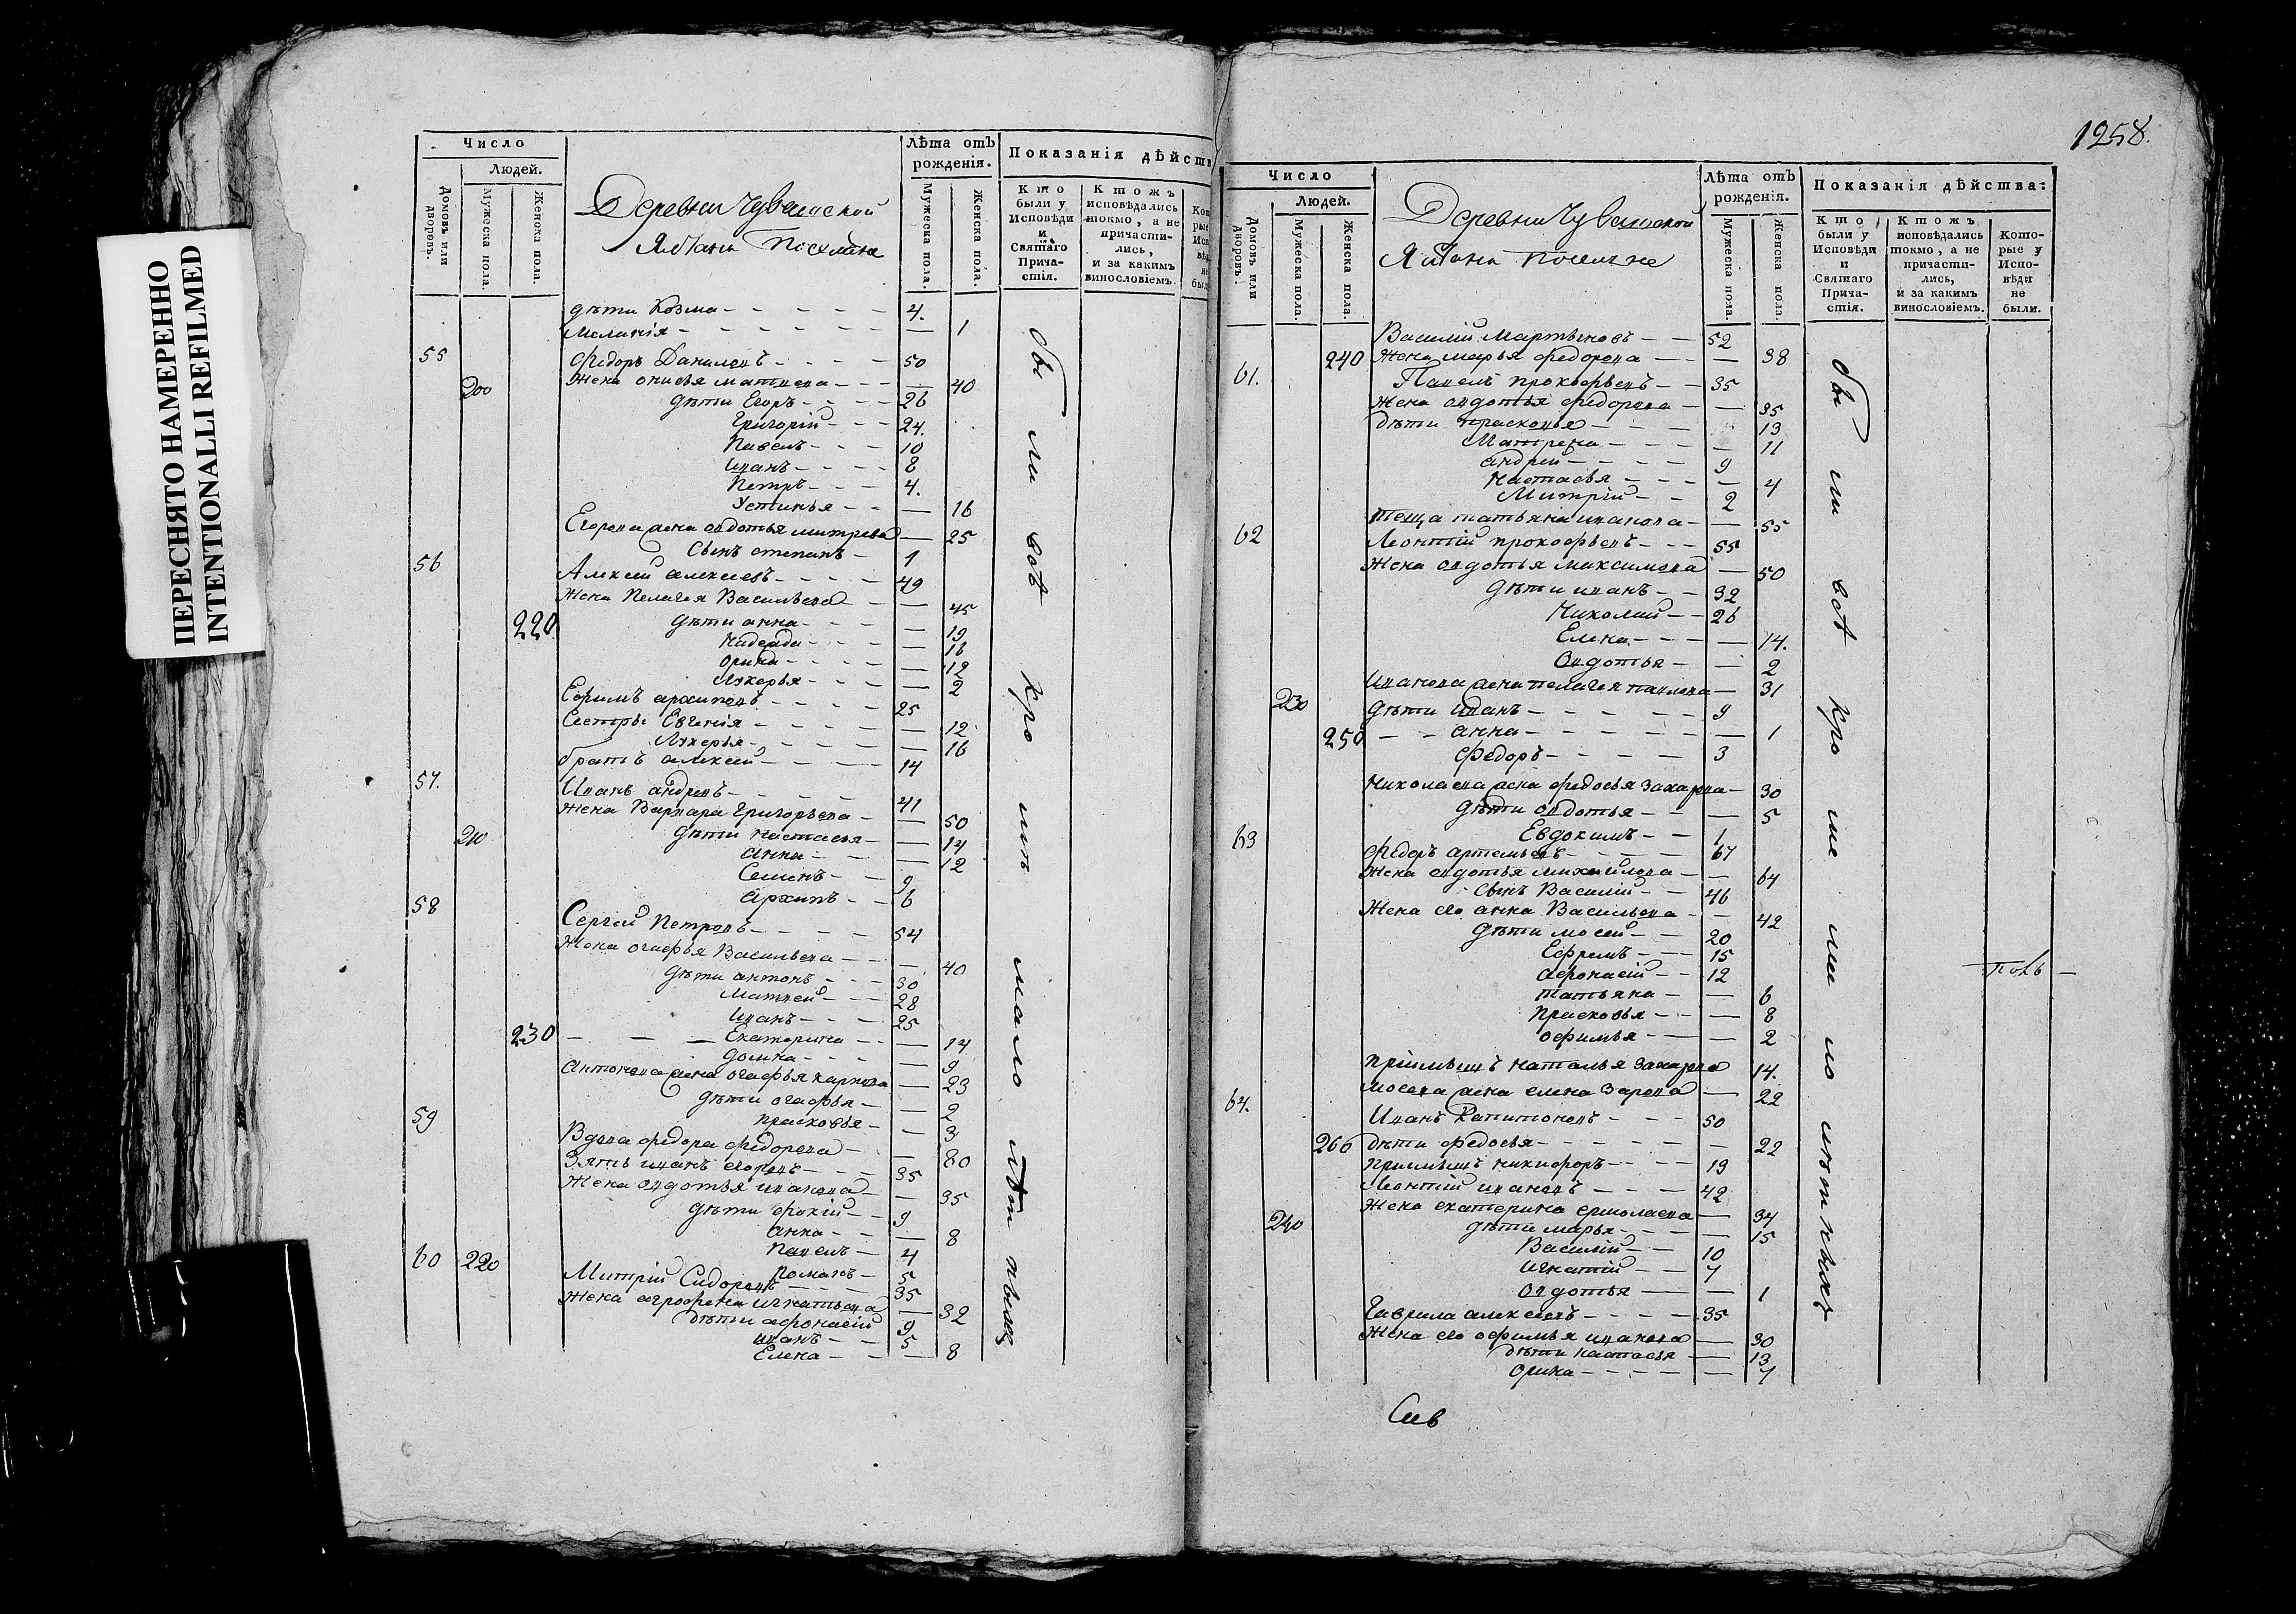 ПЕРЕСНЯТО НАМЕРЕННО
INTENTIONALLI REFILMED
Число
Людей.
Домовъ или дворовъ.
Мужеска пола.
Женска пола.
Деревни Чувашской
Лѣта отъ рожденія.
Мужеска пола.
Женска пола.
Показанія дѣйств
Кто были у Исповѣди и Святаго Причастія.
Ктожъ исповѣдались токмо, а не причастились, и за какимъ винословіемъ.
дѣти Козма 4.
Меланія 1
55 Федоръ Даниловъ 50
200 Жена 40
дѣти Егоръ 26
Григорій 24.
Павелъ 10
Иванъ 8
Петръ 4.
Устинья 16
Егорова жена овдотья митрева 25
сынъ степанъ 1
56 Алексей алексеевъ 49
Жена Пелагея Васильева 45
220 дѣти анна 19
Надежда 16
орина 12
Лукерья 2
Ефимъ архиповъ 25
Сестры Евгенія 12
Лукерья 16
братъ алексей 14
57. Иванъ андреевъ 41
Жена Варвара Григорьева 50
210 дѣти настасья 14
анна 12
Семенъ 9
архипъ 6
58 Сергей Петровъ 54
Жена огафья Васильева 40
дѣти антонъ 30
Матвей 28
Иванъ 25
230 Екатерина 14
домна 9
Антонова жена огафья карпова 23
дѣти огафья 2
прасковья 3
59 Вдова федора федорова 80
Зять иванъ егоровъ 35
Жена овдотья иванова 35
дѣти фокій 9
анна 8
Павелъ 4
Романъ 5
60 220 Митрій Сидоровъ 35
Жена агрофена игнатьева 32
дѣти афонасій 9
иванъ 5
Елена 8
бы ли всѣ кро мѣ мало лѣт ныхъ
1258.
Число
Людей.
Домовъ или дворовъ.
Мужеска пола.
Женска пола.
Деревни Чувашской
Лѣта отъ рожденія.
Мужеска пола.
Женска пола.
Показанія дѣйства:
Кто были у Исповѣди и Святаго Причастія.
Ктожъ исповѣдались токмо, а не причастились, и за какимъ винословіемъ.
Которые у Исповѣди не были.
Василій Мартыновъ 52
240 Жена марья федорова 38
61. Павелъ прокофьевъ 35
Жена овдотья федорова 35
дѣти прасковья 13
Матрена 11
андрей 9
Настасья 4
Митрій 2
теща татьяна иванова 55
62 Леонтій прокофьевъ 55
Жена овдотья максимова 50
дѣти иванъ 32
Николай 26
Елена 14.
Овдотья 2
Иванова жена пелагея павлова 31
230 дѣти иванъ 9
250 анна 1
Федоръ 3
Николаева жена федосья захарова 30
дѣти овдотья 5
Евдокимъ 1
63 Федоръ артемьевъ 67
Жена овдотья михайлова 64
сынъ Василій 46
Жена его анна Васильева 42
дѣти мосей 20
Ефремъ 15
афонасій 12
татьяна 6
Прасковья 8
офимья 2
пріимышъ наталья захарова 14.
Мосева жена елена 22
64. Иванъ Капитоновъ 50
260 дѣти федосья 22
пріимышъ никифоръ 19
Леонтій ивановъ 42
Жена екатерина ермолаева 34
240 дѣти марья 15
Василій 10
игнатій 7
Овдотья 1
Гаврила алексеевъ 35
Жена его офимья иванова 30
дѣти настасья 13
орина 7
бы ли всѣ кро ме ма ло лѣтныхъ